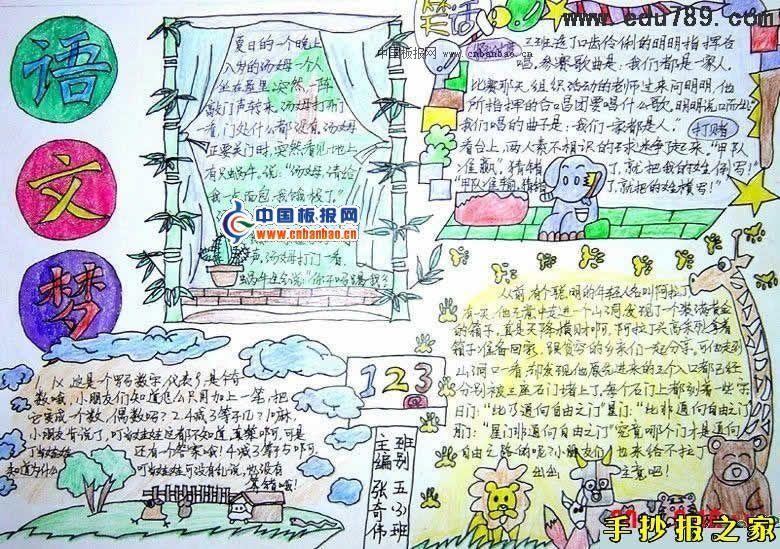 语
文
梦
夏日的一个晚上
八岁的汤姆一个人
坐在屋里,突然,一阵
敲门声转来,汤姆打开门
一看,门处什么都没有,汤姆
正要关门时,突然看见地上
有只蜗牛,说:“汤姆,请给
我一点面包,我饿极了。”
声,汤姆打开门一看,
中国板报网
www.cnbanbao.cn
中国板报网 www.cnbanbao.cn
www.edu789.com
笑话
三班选了口齿伶俐的明明指挥合
唱,参赛歌曲是:我们都是一家人。
比赛那天,组织活动的老师过来问明明,他
所指挥的合唱团要唱什么歌,明明说口而出
“我们唱的曲子是:我们一家都是人。”
打赌
看台上,两人素不相识的球迷争执起来,“甲队
准赢,猜错了,就把我的姓倒写!”
“甲队准输,猜错了,就把的姓横写!”
从前,有个聪明的年轻人名叫阿拉丁,
有一天,他无意中走进一个山洞,发现了一装满黄金
的箱子,真是天降横财啊,阿拉丁兴高采烈拿着
箱子准备回家,跟贫穷的乡亲们一起分享。可他走到
山洞口一看,却发现他原先进来的三个入口都已经
分别被三座石门堵上了,每个石门上都刻着一些字,
日门:“此乃通向自由之门”星门:“此非通向自由之门”
月门:“星门非通向自由之门”究竟哪个门才是通向
自由之路的呢?小朋友们也来给不拉丁
出出主意吧!
1、IX,这是个罗马数字,代表9,是个奇
数哦,小朋友们知道怎么只用加上一笔,把
它变成个数,偶数吗?2、4减3等于几?10嘛,
小朋友肯说了,叮当娃娃这都不知道,真笨啊,可是
还有个答案哦!4减3等于5啊,可
知道为什么
叮当娃娃可没有乱说,也没有
算错哦!
123
主编 张奇伟
班别 五(3)班
手抄报之家